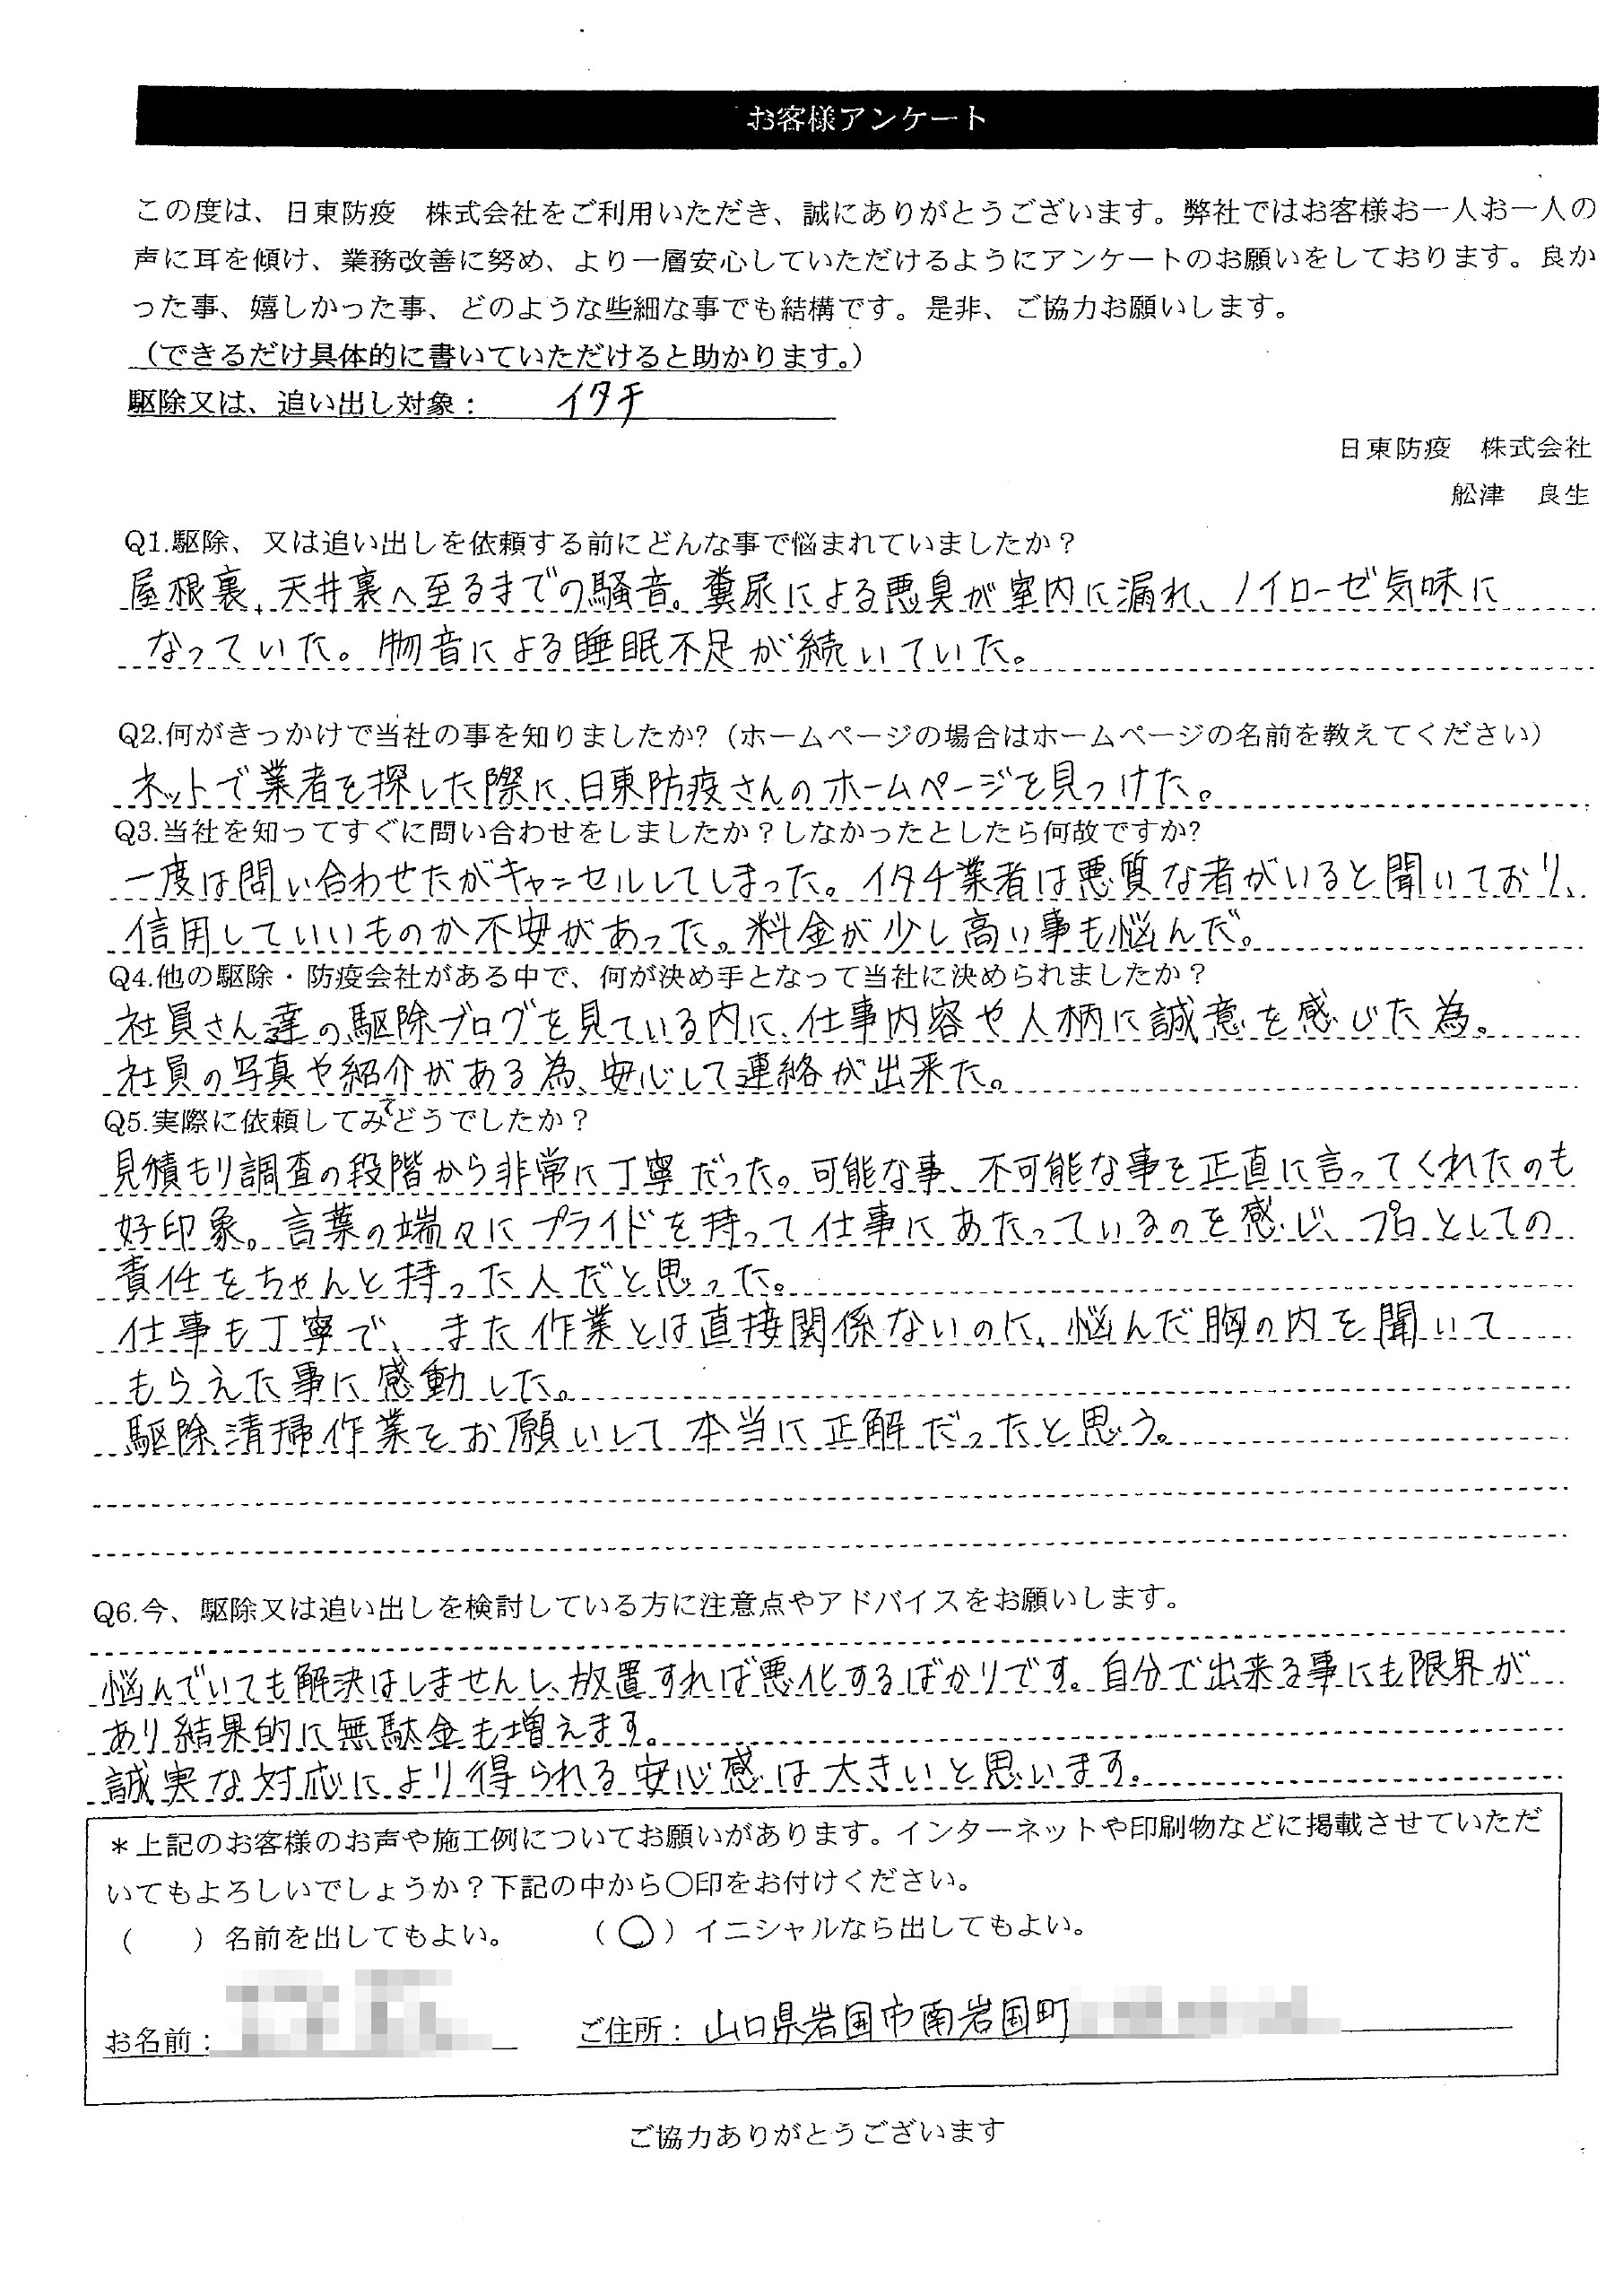 お客様アンケート
この度は、日東防疫　株式会社をご利用いただき、誠にありがとうございます。弊社ではお客様お一人お一人の
声に耳を傾け、業務改善に努め、より一層安心していただけるようにアンケートのお願いをしております。良か
った事、嬉しかった事、どのような些細な事でも結構です。是非、ご協力お願いします。
（できるだけ具体的に書いていただけると助かります。）
駆除又は、追い出し対象：　イタチ
日東防疫　株式会社
舩津　良生
Q1.駆除、又は追い出しを依頼する前にどんな事で悩まれていましたか？
屋根裏、天井裏へ至るまでの騒音。糞尿による悪臭が室内に漏れ、ノイローゼ気味に
なっていた。物音による睡眠不足が続いていた。
Q2.何がきっかけで当社の事を知りましたか?（ホームページの場合はホームページの名前を教えてください）
ネットで業者を探した際に、日東防疫さんのホームページを見つけた。
Q3.当社を知ってすぐに問い合わせをしましたか？しなかったとしたら何故ですか?
一度は問い合わせたがキャンセルしてしまった。イタチ業者は悪質な者がいると聞いており、
信用していいものか不安があった。料金が少し高い事も悩んだ。
Q4.他の駆除・防疫会社がある中で、何が決め手となって当社に決められましたか？
社員さん達の駆除ブログを見ている内に、仕事内容や人柄に誠意を感じた為。
社員の写真や紹介がある為、安心して連絡が出来た。
Q5.実際に依頼してみてどうでしたか？
見積もり調査の段階から非常に丁寧だった。可能な事、不可能な事を正直に言ってくれたのも
好印象。言葉の端々にプライドを持って仕事にあたっているのを感じ、プロとしての
責任をちゃんと持った人だと思った。
仕事も丁寧で、また作業とは直接関係ないのに、悩んだ胸の内を聞いて
もらえた事に感動した。
駆除清掃作業をお願いして本当に正解だったと思う。
Q6.今、駆除又は追い出しを検討している方に注意点やアドバイスをお願いします。
悩んでいても解決はしませんし、放置すれば悪化するばかりです。自分で出来る事にも限界が
あり結果的に無駄金も増えます。
誠実な対応により得られる安心感は大きいと思います。
＊上記のお客様のお声や施工例についてお願いがあります。インターネットや印刷物などに掲載させていただ
いてもよろしいでしょうか？下記の中から〇印をお付けください。
（　　）名前を出してもよい。　　（〇）イニシャルなら出してもよい。
お名前：　ご住所：山口県岩国市南岩国町
ご協力ありがとうございます